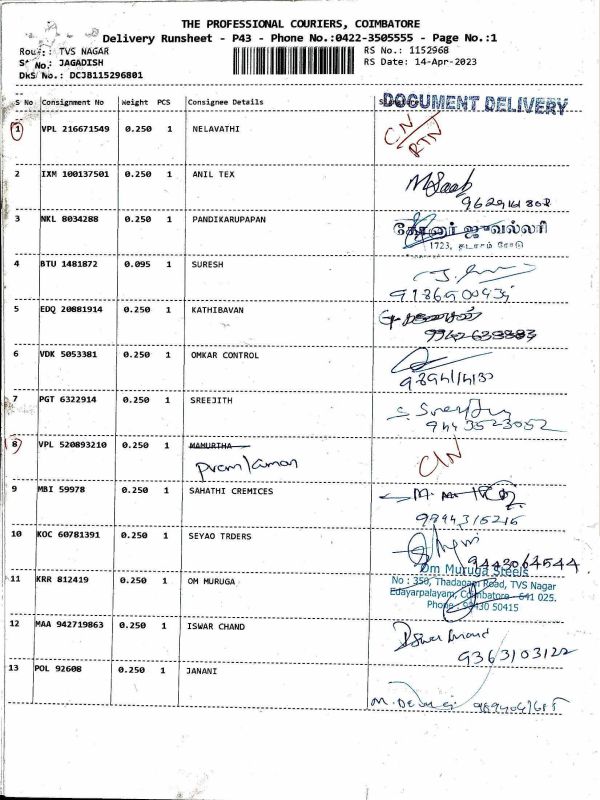 THE PROFESSIONAL COURIERS, COIMBATORE
Delivery Runsheet - P43 - Phone No.:0422-3505555 - Page No.:1
TVS NAGAR RS No.: 1152968
No.: JAGADISH RS Date: 14-Apr-2023
DkS No.: DCJB115296801
S No Consignment No Weight PCS Consignee Details
DOCUMENT DELIVERY
1 VPL 216671549 0.250 1 NELAVATHI CN/RTN
2 IXM 100137501 0.250 1 ANIL TEX
3 NKL 8034288 0.250 1 PANDIKARUPAPAN
ஜுவல்லரி
1723, தடாகம் ரோடு
4 BTU 1481872 0.095 1 SURESH
5 EDQ 20881914 0.250 1 KATHIBAVAN
6 VDK 5053381 0.250 1 OMKAR CONTROL
7 PGT 6322914 0.250 1 SREEJITH
9443523052
8 VPL 520893210 0.250 1 MAMURTHA
9 MBI 59978 0.250 1 SAHATHI CREMICES
9944316216
10 KOC 60781391 0.250 1 SEYAO TRDERS
9443064544
Om Muruga Steels
11 KRR 812419 0.250 1 OM MURUGA
No : 350, Thadagam Road, TVS Nagar
Edayarpalayam, Coimbatore - 641 025.
Phone : 93430 50415
12 MAA 942719863 0.250 1 ISWAR CHAND
9363103122
13 POL 92608 0.250 1 JANANI